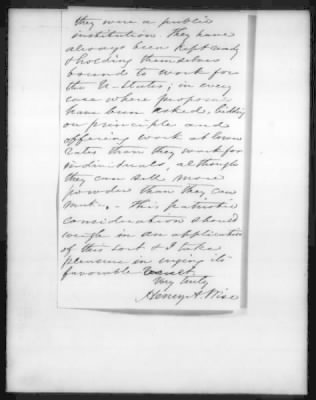 they were a public
institution. They have
always been kept ready
& holding themselves
bound to work for
the U. States; in every
case where proposals
have been asked, bidding
on principle and
offering work at lower
rates than they work for
individuals, although
they can sell more
powder than they can
make. - This patriotic
consideration should
weigh in an application
of this sort & I take
pleasure in urging its
favorable
Very truly
Henry A. Wise